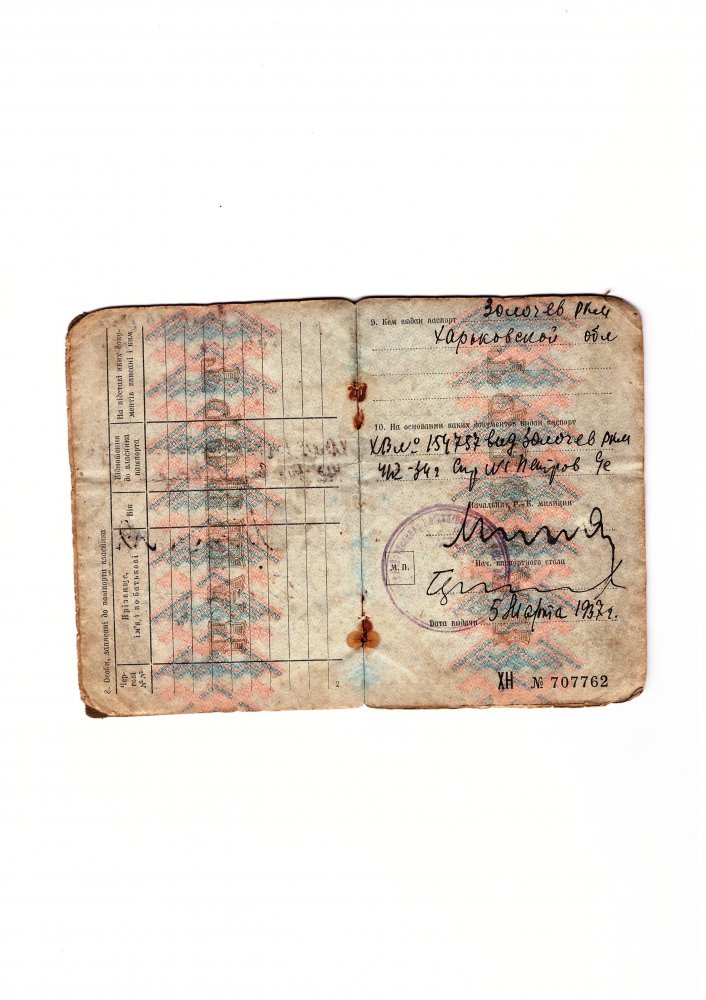 8. Особи, записані до пашпорта власника
Чер-
гові
№№
Прізвище,
ім'я, і по батькові
Вік
Відношення
до власника
пашпорта
На підставі яких доку-
ментів вписані і ким
2
9. Кем выдан паспорт Золочев ркм
Харьковской обл
10. На основании каких документов выдан паспорт
ХВ № 154757 выд Золочев ркм
Начальник Р.-К. милиции
М. П.
Нач. паспортного стола
Дата выдачи 5 Марта 1937 г.
ХН № 707762